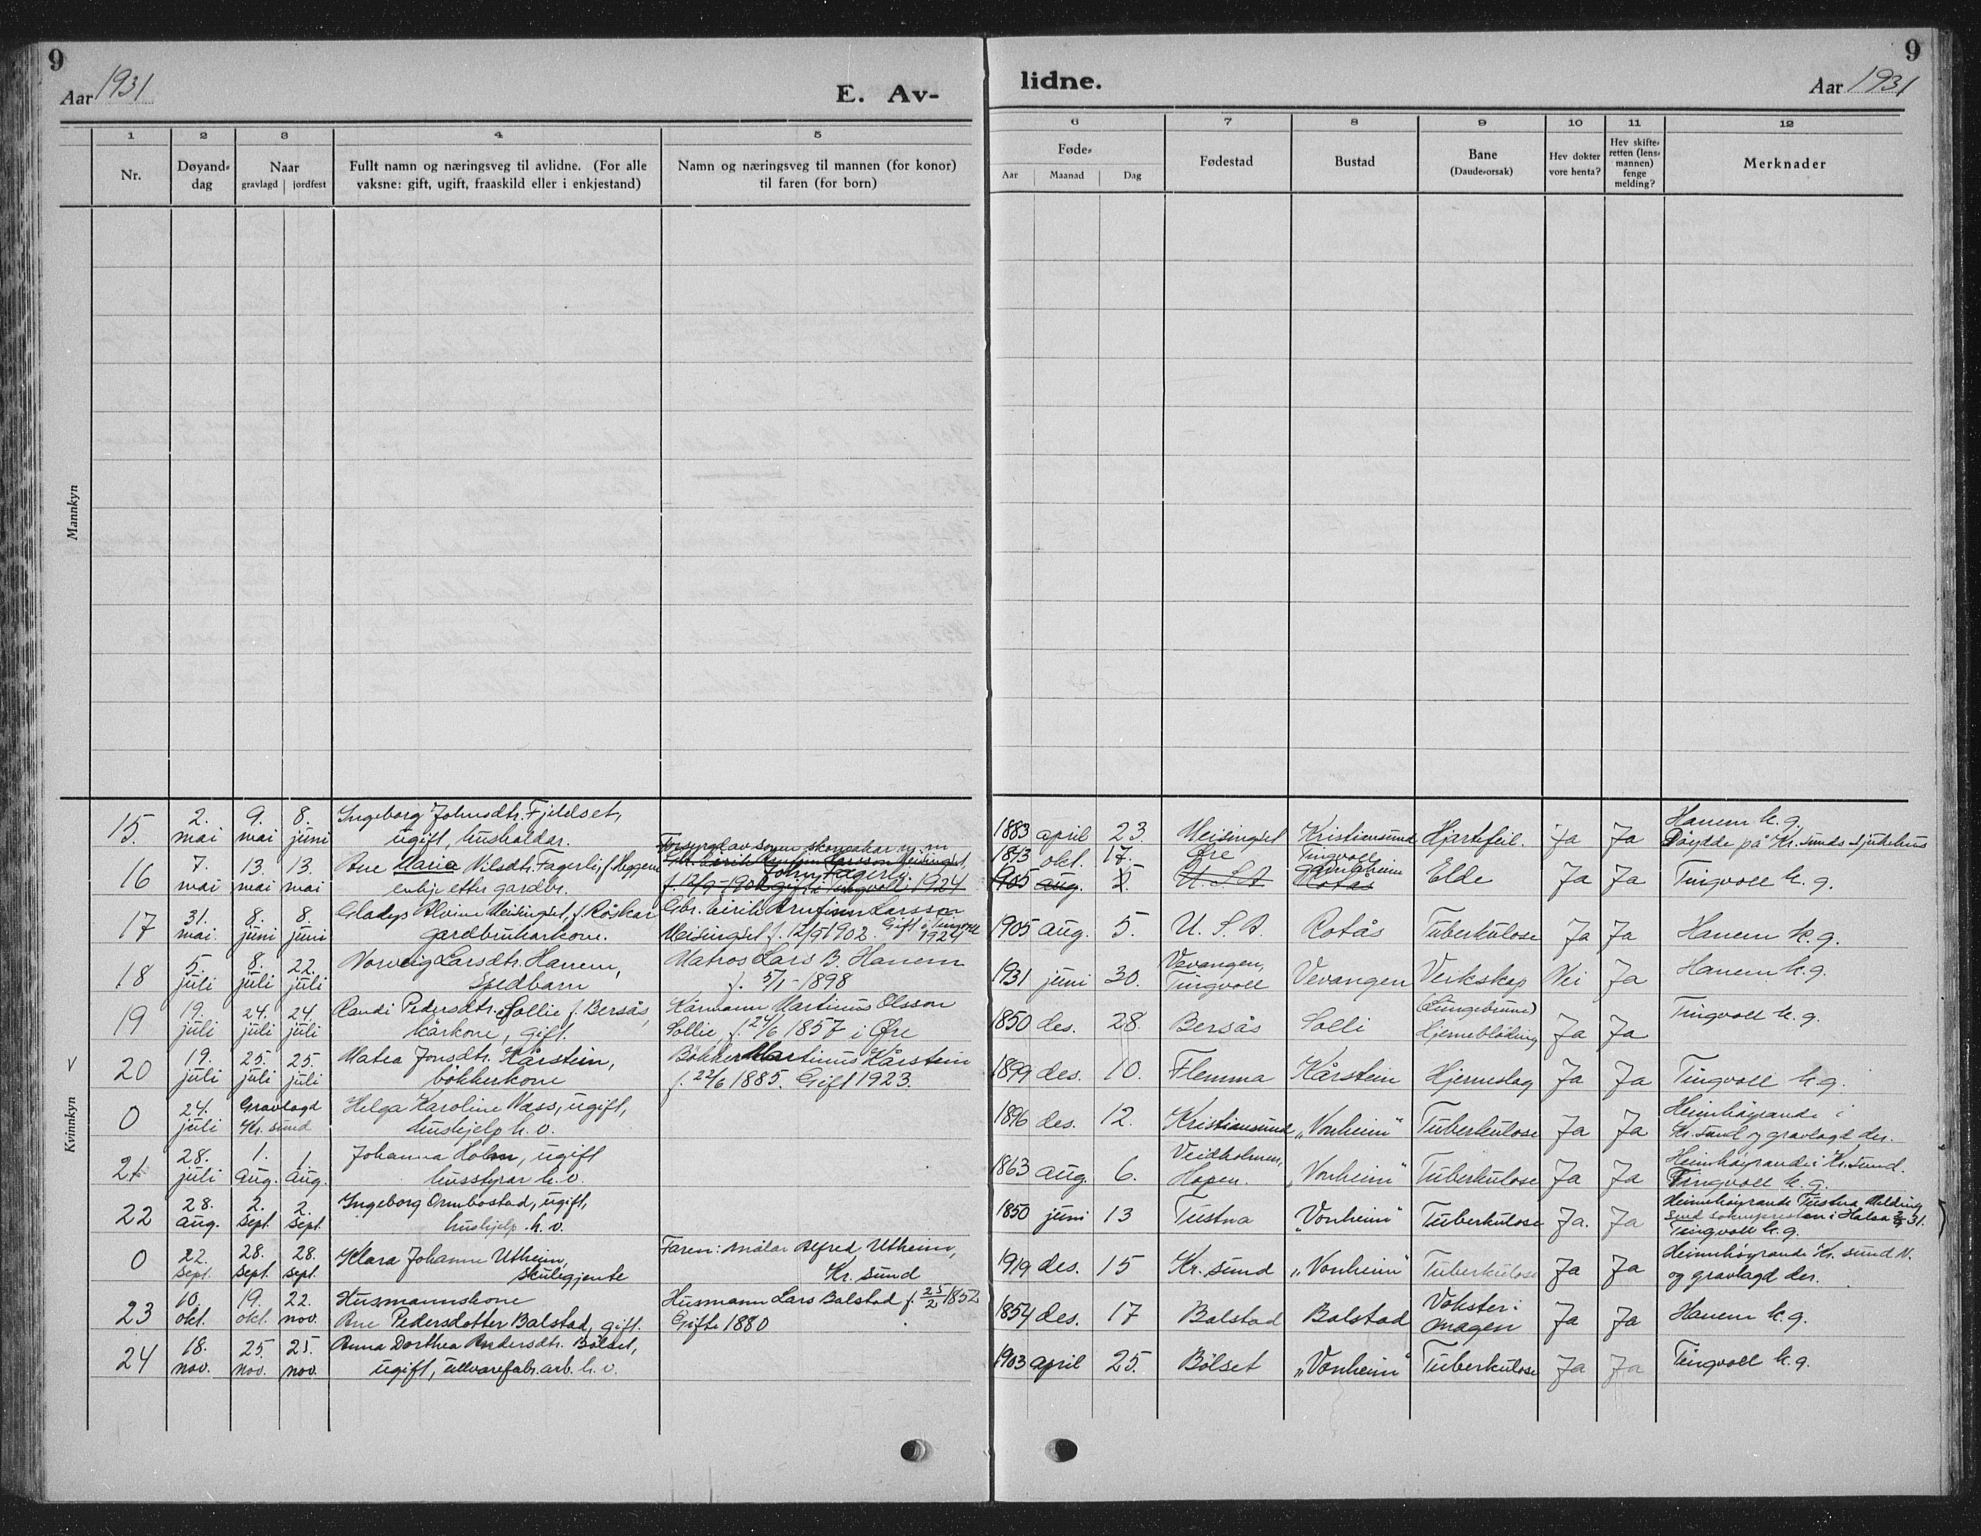 9
Aar 1931
E. Av-
lidne.
Aar 1931
9
1 2 3 4 5
6 7 8 9 10 11 12
Nr.
Døyand-
dag
Naar
gravlagd jordfest
Fullt namn og næringsveg til avlidne. (For alle
vaksne: gift, ugift, fraaskild eller i enkjestand)
Namn og næringsveg til mannen (for konor)
til faren (for born)
Føde-
Aar Maanad Dag
Fødestad
Bustad
Bane
(Daude-orsak)
Hev dokter
vore henta?
Hev skifte-
retten (lens-
mannen)
fenge
melding?
Merknader
Mannkyn
Kvinnkyn
V
15. 2. mai 9. mai 8. juni Ingeborg Johnsdtr. Fjeldset,
ugift, husholder.
1883 april 23 Meisingset Kristiansund Hjartefeil. Ja Ja Hanem k.g.
Døydde på Kr. Sunds sjukehus
16 7. mai 13. mai 13. mai Ane Maria Nilsdtr. Fagerli, f. Heggem
enkje etter gardbr.
John Fagerli.
f. 12/9-1902 gift i Tingvoll 1924
1843 okt. 17. Øre Tingvoll
1905 aug. 5. U.S.A. Rotås Elde Ja Ja Tingvoll k.g.
17 31. mai. 8. juni 8. juni Gladys Alvine Meisingset, f. Röskar
gardbrukarkone.
Gbr. Eirik Arnfinn Larsson
Meisingset f. 12/9 1902. Gift i Tingvoll
1924
1905 aug. 5. U.S.A. Rotås Tuberkulose Ja Ja Hanem k.g.
18 5. juli 8. juli 22. juli Norveig Larsdtr. Hanem,
Spedbarn
Matros Lars B. Hanem
f. 5/1-1898
1931 juni 30. Vevangen,
Tingvoll Vevangen Verkskap Nei Ja Hanem k.g.
19 19. juli 24. juli 24. juli Randi Pedersdtr. Sollie f. Bersås,
kårkone, gift.
Kårmann Martinus Olsson
Sollie f. 24/6 1857 i Øre
1850 des. 28 Bersås Solli (Lungebrune)
Hjerneblöding Ja Ja Tingvoll k.g.
20 19. juli 25. juli 25. juli Matea Jonsdtr. Kårstein,
bökkerkone
Bökker Martinus Kårstein
f. 22/6 1885. Gift 1923.
1899 des. 10. Flemma Kårstein Hjerneslag Ja Ja Tingvoll k.g.
0 24. juli Gravlagd
Kr. sund Helga Karoline Næss, ugift,
hushjelp h.v.
1896 des. 12. Kristiansund „Vonheim" Tuberkulose Ja Ja Heimhøyrande i
Kr. sund og gravlagd der.
21 28. juli 1. aug. 1. aug. Johanna Holm, ugift
husstyrar h.v.
1863 aug. 6. Veidholmen,
Hopen. „Vonheim" Tuberkulose Ja Ja Heimhøyrande i Kr. sund.
Tingvoll k.g.
22 28. aug. 2. sept. 2. sept. Ingeborg Ormbostad, ugift,
hushjelp h.v.
1850 juni 13 Tustna „Vonheim" Tuberkulose Ja. Ja Heimhøyrande Tustna Melding
send soknepresten i Halsa 31.
Tingvoll k.g.
0 22. sept. 28. sept. 28. sept. Klara Johanne Utheim,
skulegjente
Faren: målar Alfred Utheim,
Kr. sund
1919 des. 15 Kr. sund „Vonheim" Tuberkulose Ja Ja Heimhøyrande Kr. sund N.
og gravlagd der.
23 10. okt. 19. okt. 22. nov. Husmannskone
Ane Pedersdotter Balstad, gift.
Husmann Lars Balstad f. 25/2 1852
Gifte 1880
1854 des. 17 Balstad Balstad Vokster i
magen Ja Ja Hanem k.g.
24 18. nov. 25. nov. 25. nov. Anna Dorthea Andersdtr. Bölset,
ugift, ullvarefabr. arb. h.v.
1903 april 25. Bölset „Vonheim" Tuberkulose Ja Ja Tingvoll k.g.